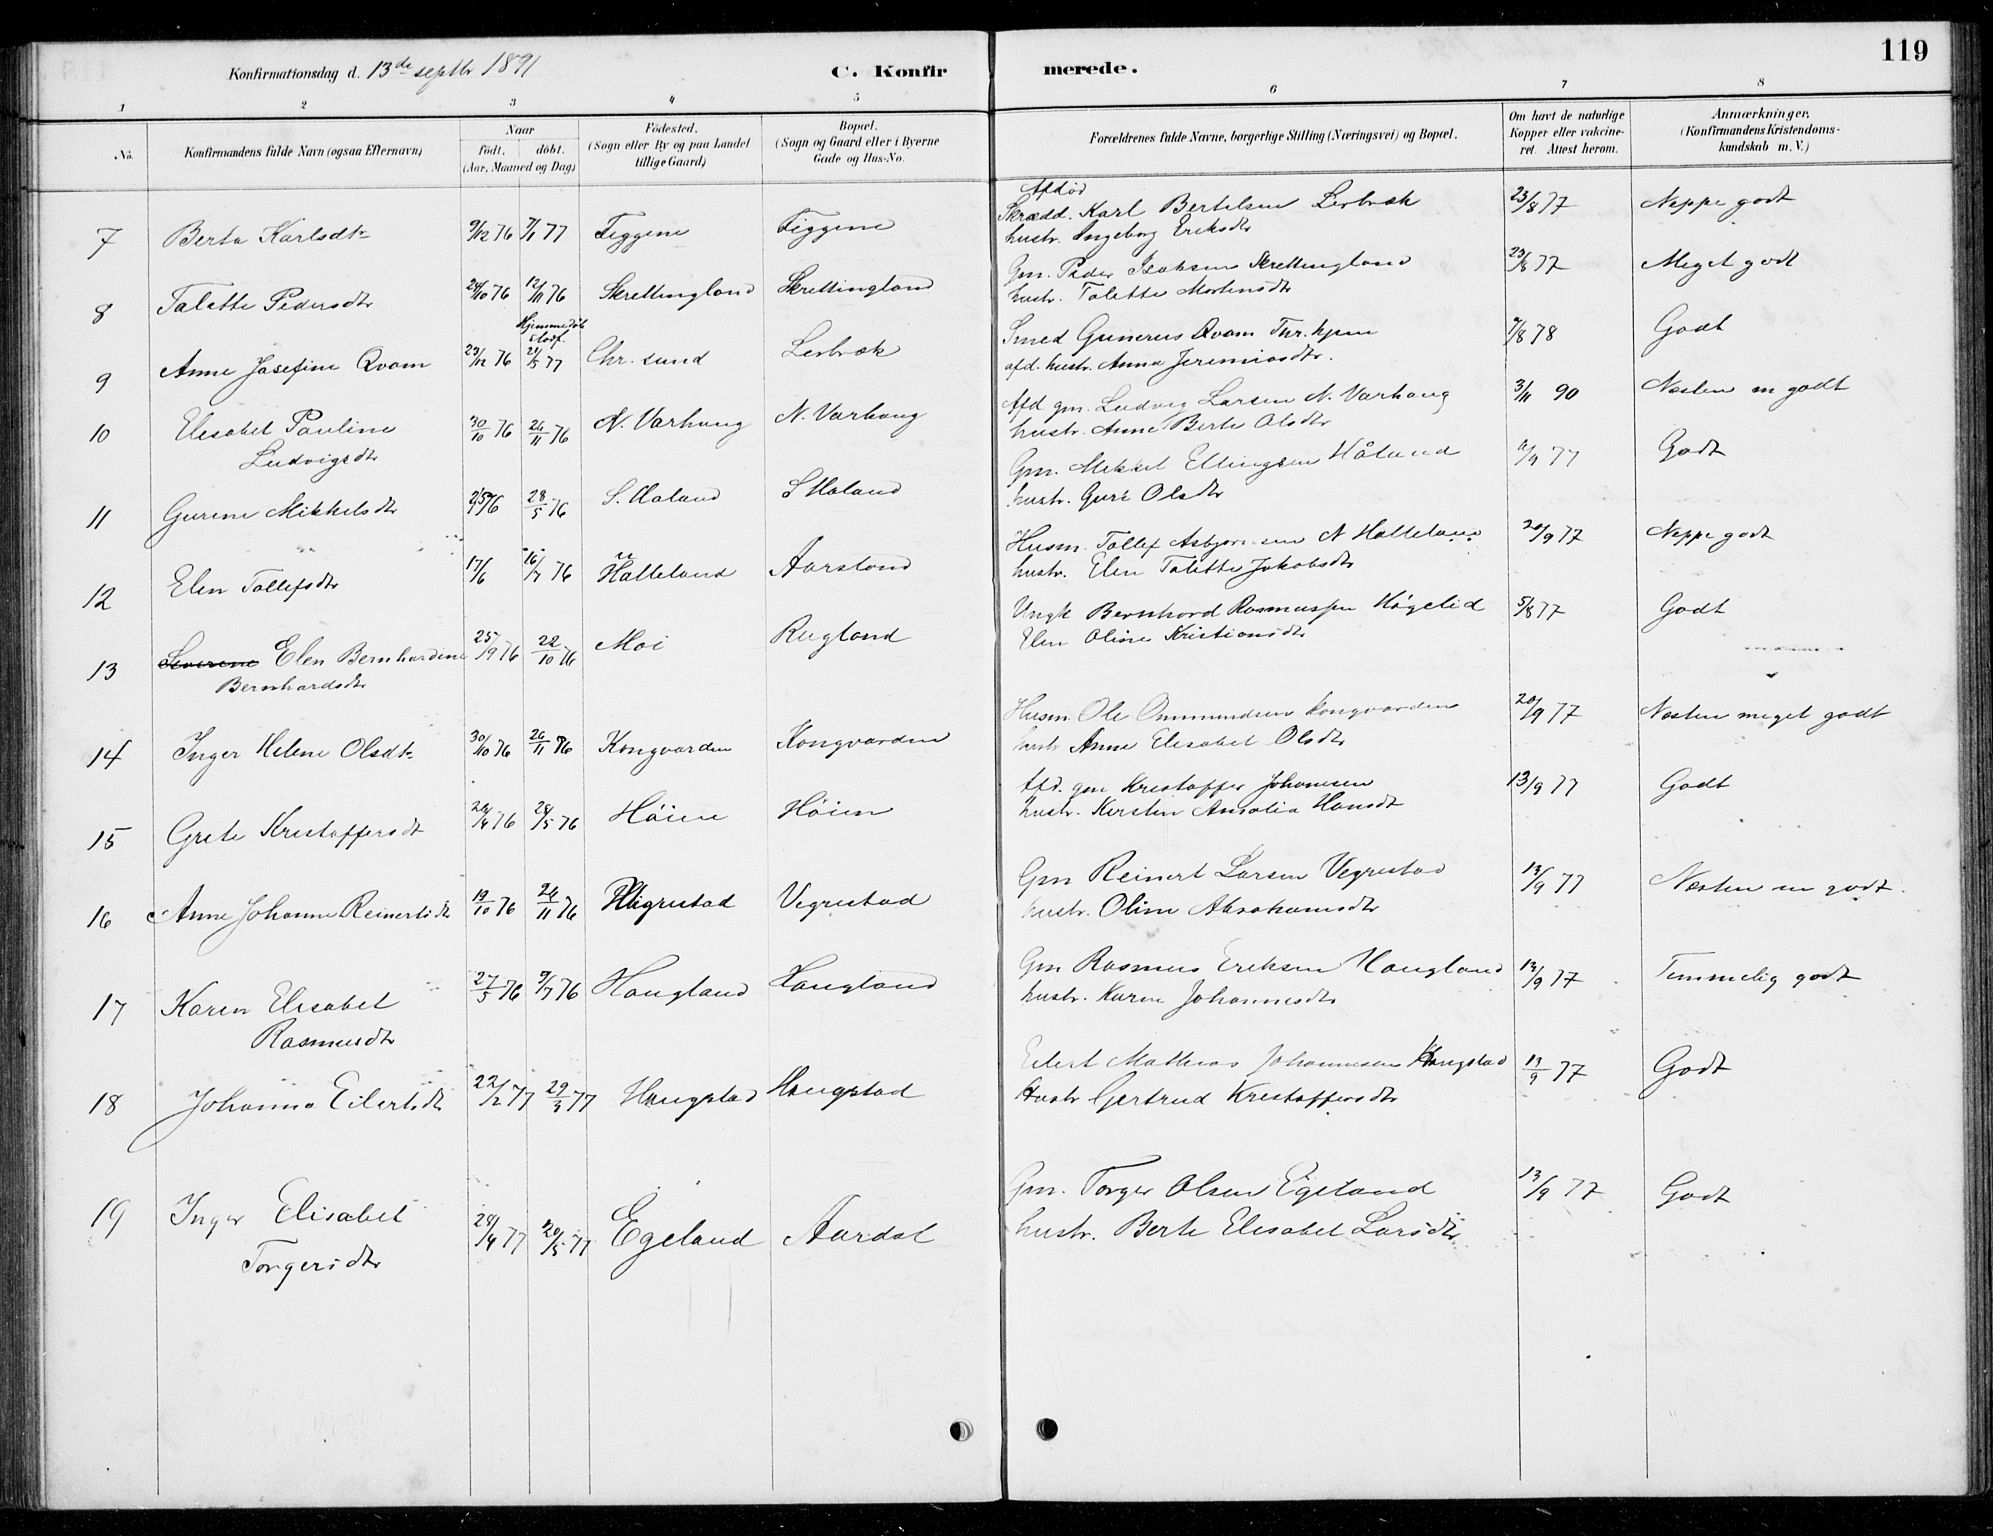 119
Konfirmationsdag d. 13de septbr 1891
C. Konfirmerede.
1 2 3 4 5 6 7 8
No.
Konfirmandens fulde Navn (ogsaa Efternavn)
Naar
födt. döbt.
(Aar, Maaned og Dag)
Födested.
(Sogn eller By og paa Landet
tillige Gaard)
Bopæl.
(Sogn og Gaard eller i Byerne
Gade og Hus-No.
Forældrenes fulde Navne, borgerlige Stilling (Næringsvei) og Bopæl.
Om havt de naturlige
Kopper eller vakcine-
ret. Attest herom.
Anmærkninger.
(Konfirmandens Kristendoms-
kundskab m. V.)
7 Berta Karlsdtr 9/12 76 7/1 77 Tiggene Tiggene
Afdød
Skrædd. Karl Bertelsen Lerbræk 23/8 77 Neppe godt
hustr. Ingeborg Eriksdtr
8 Talette Pedersdtr 24/10 76 12/11 76 Skrettingland Skrettingland
Gm. Peder Isaksen Skrettingland 23/8 77 Meget godt
hustr. Talette Mortensdtr
9 Anne Josefine Qvam 23/12 76 Hjemmedøbt 21/5 77 Chr. sund Lerbræk
Smed Gunerus Qvam 7/8 78 Godt
afd. hustr. Anna Jeremiasdtr.
10 Elisabet Pauline 30/10 76 26/11 76 N. Varhaug N. Varhaug
Ludvigsdtr
Afd gm. Ludvig Larsen N. Varhaug 3/11 90 Næsten m godt
hustr. Anne Berte Olsdtr
11 Gurine Mikkelsdtr 28/5 76 S. Haland S Haland
Gm. Mikkel Ellingsen Håland 77 Godt
hustr. Guri Olsdtr
12 Elen Tollefsdtr 17/6 16/7 76 Hålleland Aarsland
Husm. Tollef Asbjørnsen N Halleland 20/9 77 Neppe godt
hustr. Elen Talette Jakobsdtr
13 Severine Elen Bernhardine 25/9 76 22/10 76 Moi Rugland
Bernhardsdtr
Ungk Bernhard Rasmussen Høgelid 5/8 77 Godt
Elen Oline Kristiansdtr
14 Inger Helene Olsdtr 30/10 76 26/11 76 Kongvarden Kongvarden
Husm. Ole Ommundsen Kongvarden 20/9 77 Næsten meget godt
hustr Anne Elisabet Olsdtr
15 Grete Kristoffersdt 24/4 76 28/5 76 Høien Høien
Afd. gm Kristoffer Johannesen 13/9 77 Godt
hustr. Kirsten Amalia Hansdt
16 Anne Johanne Reinertsdtr 19/10 76 26/11 76 Vigrestad Vegrestad
Gm Reinert Larsen Vegrestad 13/9 77 Næsten m godt
hustr. Oline Abrahamsdtr
17 Karen Elisabet 27/5 76 9/7 76 Haugland Haugland
Rasmusdtr
Gm Rasmus Eriksen Haugland 13/9 77 Temmelig godt
hustr. Karen Johannesdtr
18 Johanna Eilertsdt 22/2 77 29/3 77 Haugstad Haugstad
Eilert Mathias Johannesen Haugstad 13/9 77 Godt
Hustr Gertrud Kristoffersdtr
19 Inger Elisabet 28/4 77 20/5 77 Egeland Aardal
Torgersdtr
Gm. Torger Olsen Egeland 13/9 77 Godt
hustr. Berte Elisabet Larsdtr